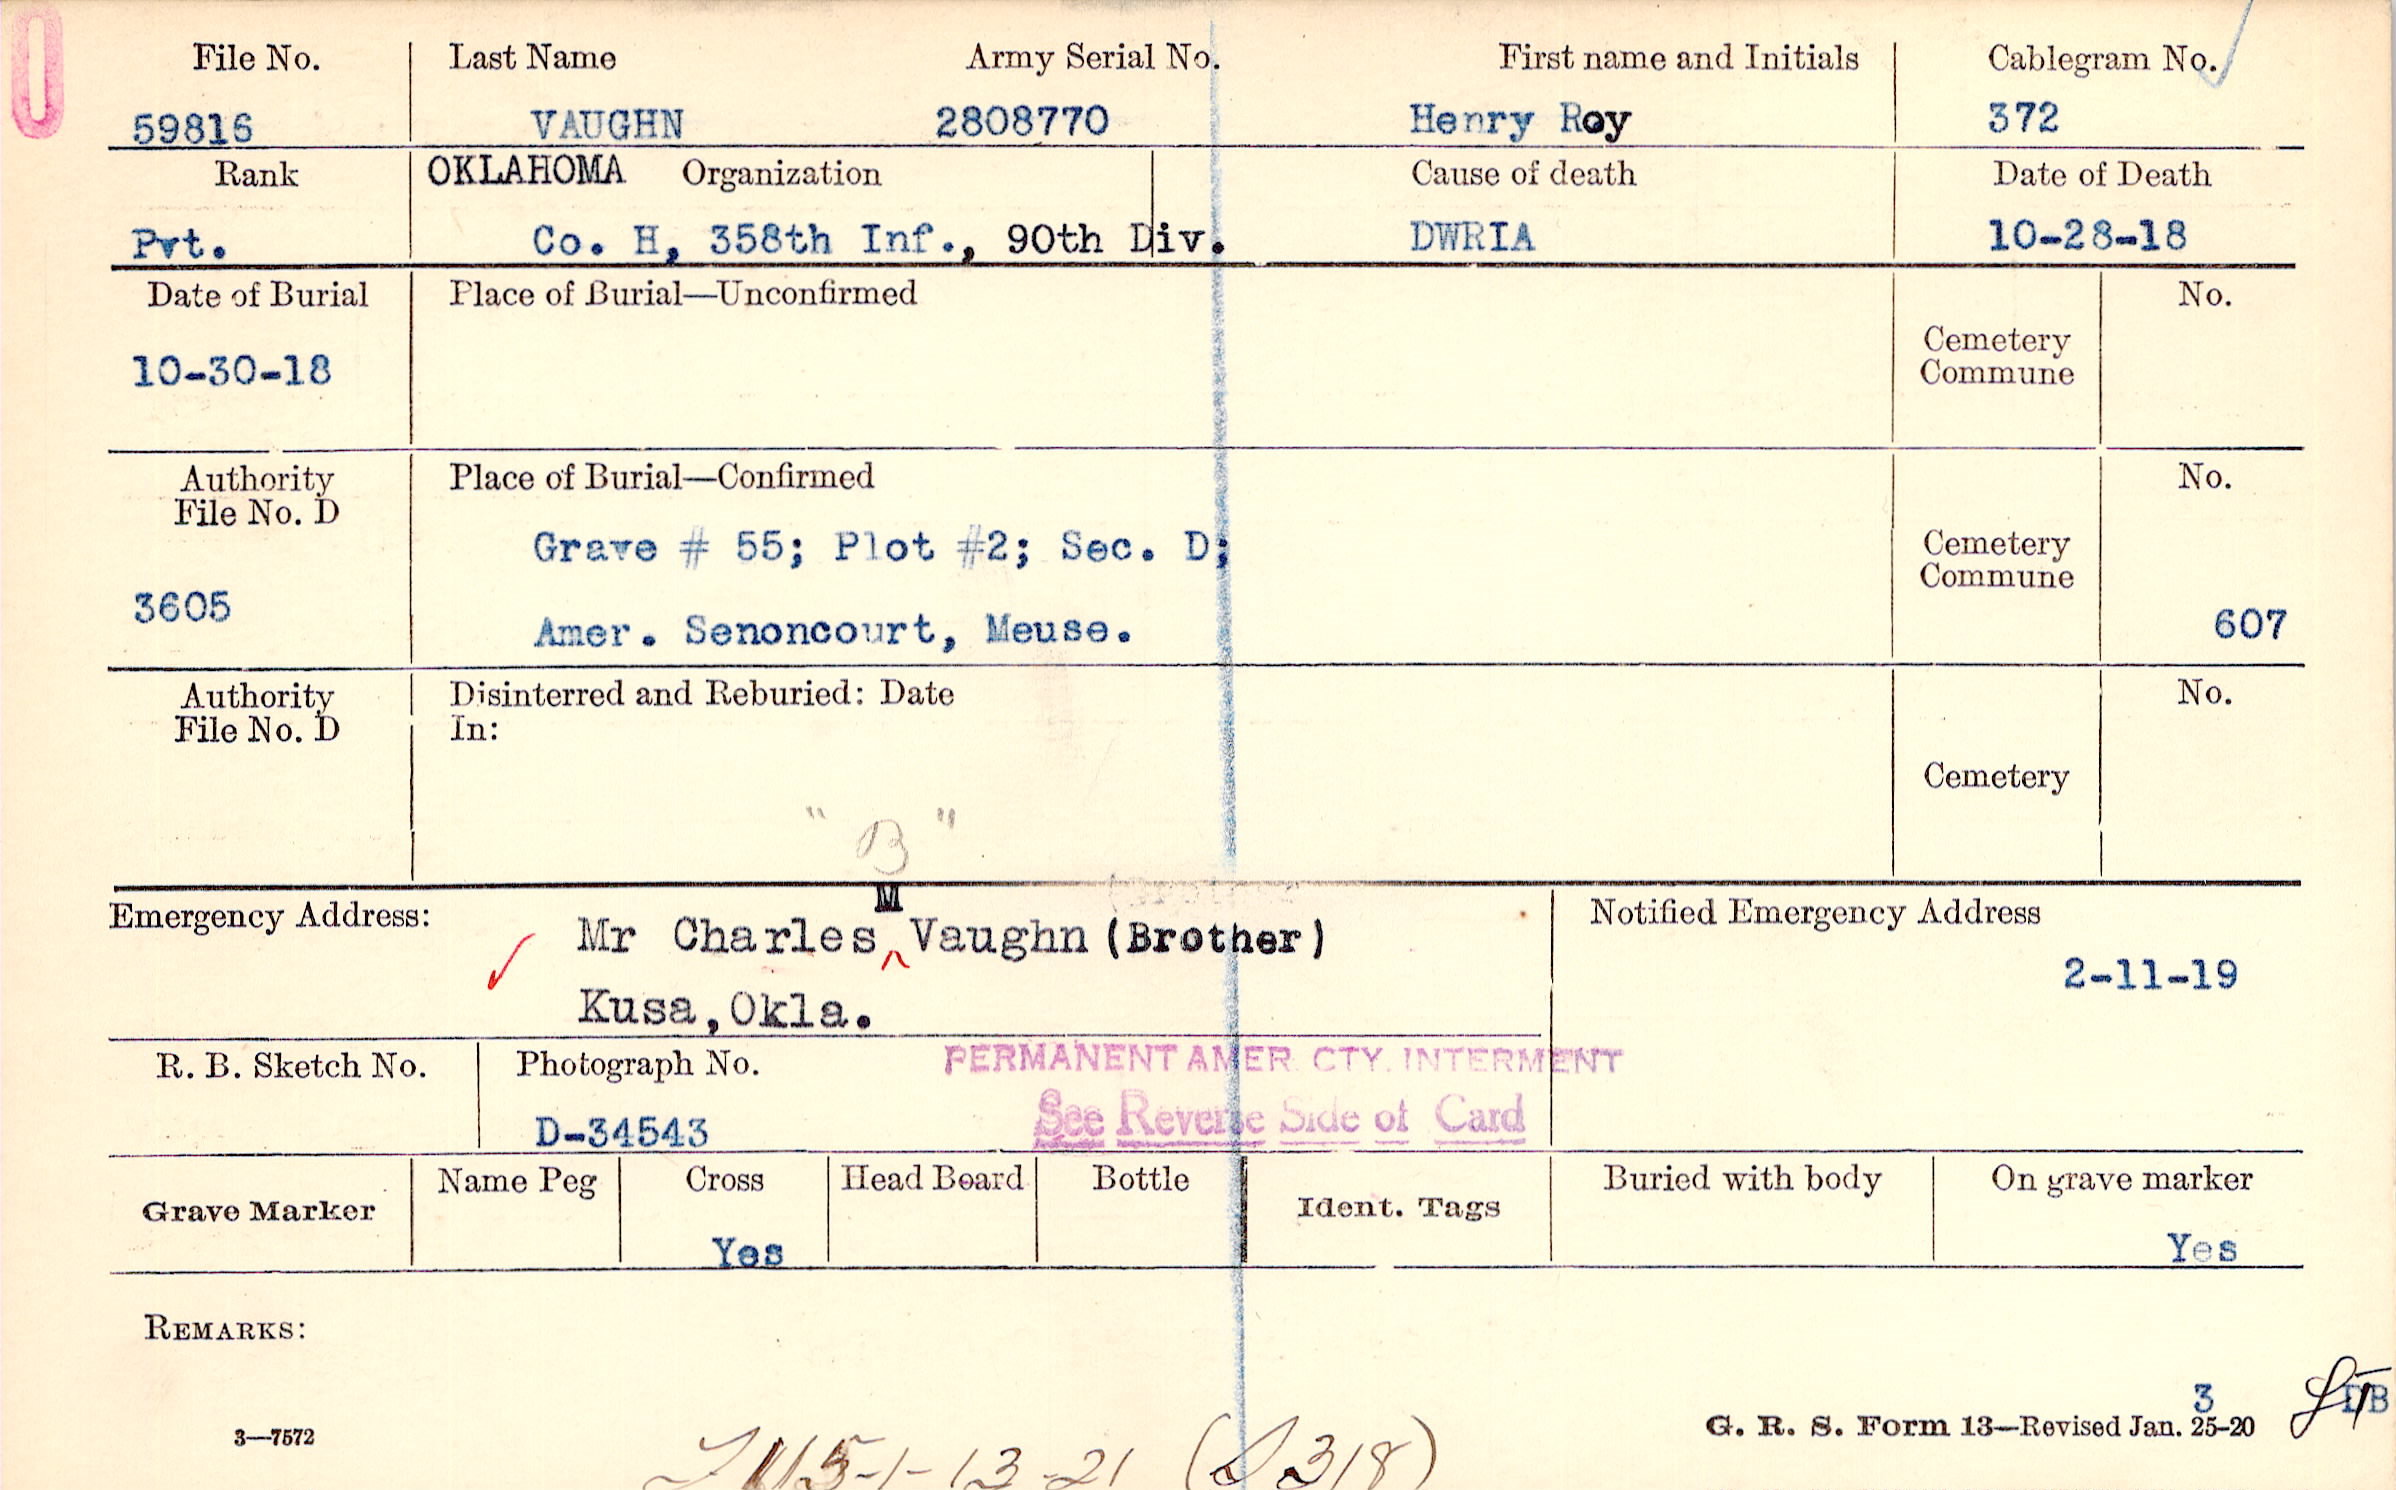 File No. Last Name Army Serial No. First name and Initials Cablegram No.
59816 VAUGHN 2808770 Henry Roy 372
Rank OKLAHOMA Organization Cause of death Date of Death
Pvt. Co. H, 358th Inf., 90th Div. DWRIA 10-28-18
Date of Burial Place of Burial—Unconfirmed No.
Cemetery
Commune
10-30-18
Authority Place of Burial—Confirmed No.
File No. D
Grave # 55; Plot #2; Sec. D; Cemetery
Commune
3605 Amer. Senoncourt, Meuse. 607
Authority Disinterred and Reburied: Date No.
File No. D In:
Cemetery
" B "
M
Emergency Address: Mr Charles Vaughn (Brother) Notified Emergency Address
Kusa, Okla. 2-11-19
R. B. Sketch No. Photograph No. PERMANENT AMER. CTY. INTERMENT
D-34543 See Reverse Side of Card
Grave Marker Name Peg Cross Head Board Bottle Ident. Tags Buried with body On grave marker
Yes Yes
REMARKS:
3 DB
3—7572 G. R. S. Form 13—Revised Jan. 25-20
1-13-21 (S318)